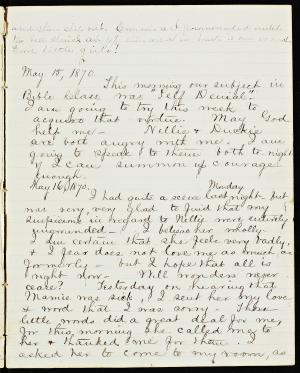 May 15, 1870.
This morning our subject in
Bible Class was "Self Denial"
I am going to try this week to
acquire that virtue. May God
help me — Nellie & Duckie
are both angry with me. I am
going to speak to them both to night
if I can summon up courage
enough.
May 16, 1870. Monday
I had quite a scene last night but
was very, very glad to find that my
suspicions in regard to Nelly were entirely
ungrounded — I believe her wholly
I am certain that she feels very badly,
& I fear does not love me as much as
formerly — but I hope that all is
right now — Will wonders never
cease? Yesterday on hearing that
Mamie was sick, I sent her my love
& word that I was sorry — Those
little words did a great deal for me,
for this morning she called me to
her & thanked me for them. I
asked her to come to my room, as